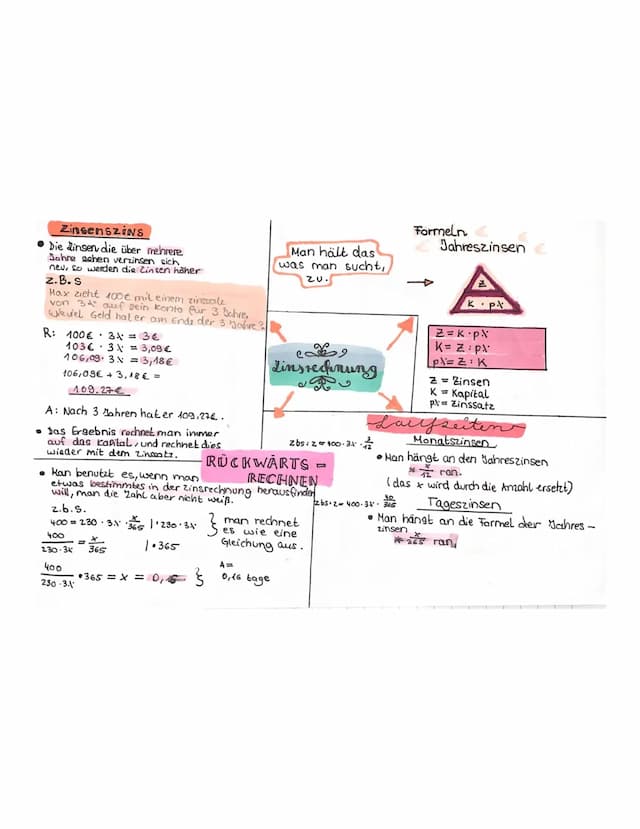 Zinsenszins
Die Zinsen die über mehrere
Jahre gehen verzinsen sich
neu, so werden die Zinsen höher
z.B.s
Max zieht 100€ mit einem zinssatz
von 3% auf sein Konto für 3 Jahre,
wieviel Geld hat er am Ende der 3 Jahre?
R: 100€ · 3% = 3€
103€ · 3% = 3,09€
106,09 · 3% = 3,18€
106,09€ + 3,18€ =
109.27€
A: Nach 3 Jahren hat er 109.27€.
Das Ergebnis rechnet man immer
auf das Kapital, und rechnet dies
wieder mit dem Zinssatz.
Man hält das
was man sucht,
zu.
Formeln
Jahreszinsen
Z
K · p%
Z = K · p%
K = Z : p%
p% = Z : K
Z = Zinsen
K = Kapital
p% = Zinssatz
Zinsrechnung
Laufzeiten
Monatszinsen
zbs: z = 400 · 3% · 3/12
Man hängt an den Jahreszinsen
* x/12 ran.
(das x wird durch die Anzahl ersetzt)
Tageszinsen
zbs · z = 400 · 3% · 40/365
Man hängt an die Formel der Jahres-
zinsen
* x/365 ran.
RÜCKWÄRTS-
RECHNEN
Man benutzt es, wenn man
etwas bestimmtes in der Zinsrechnung herausfinden
will, man die Zahl aber nicht weiß.
z.b.s.
400 = 230 · 3% · x/365 | · 230 · 3%
400/230·3% = x/365 | · 365
400/230·3% · 365 = x = 0,
man rechnet
es wie eine
Gleichung aus.
A =
0,16 tage